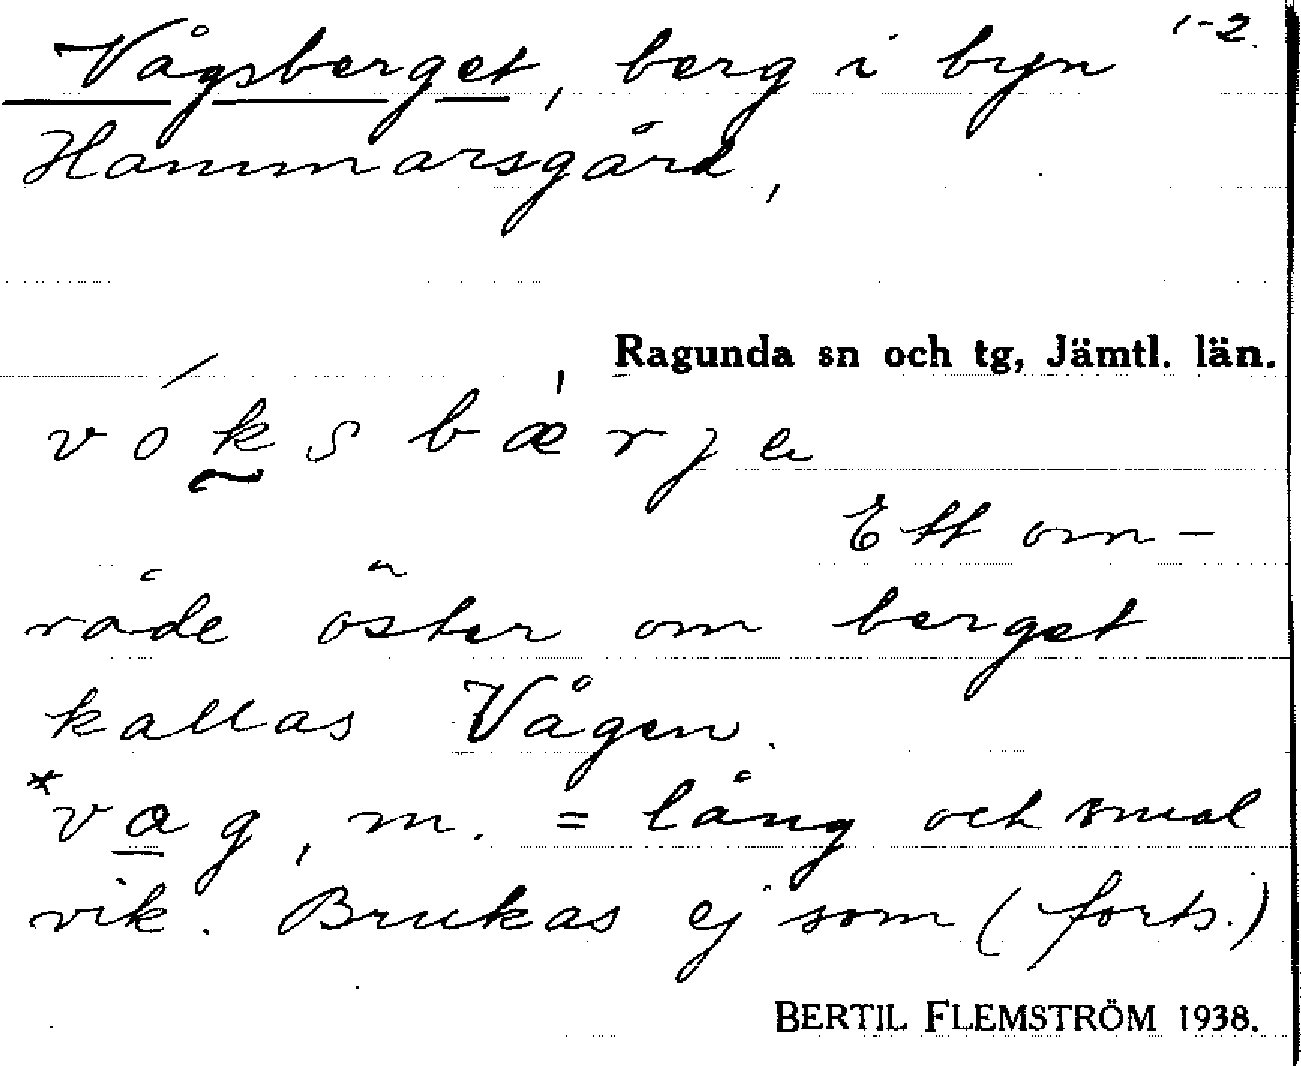 1-2.
Vågsberget, berg i byn
Hammarsgård,
Ragunda sn och tg, Jämtl. län.
vóksbærje
Ett om-
råde öster om berget
kallas Vågen.
*vag, m. = lång och smal
vik. Brukas ej som (forts.)
BERTIL FLEMSTRÖM 1938.